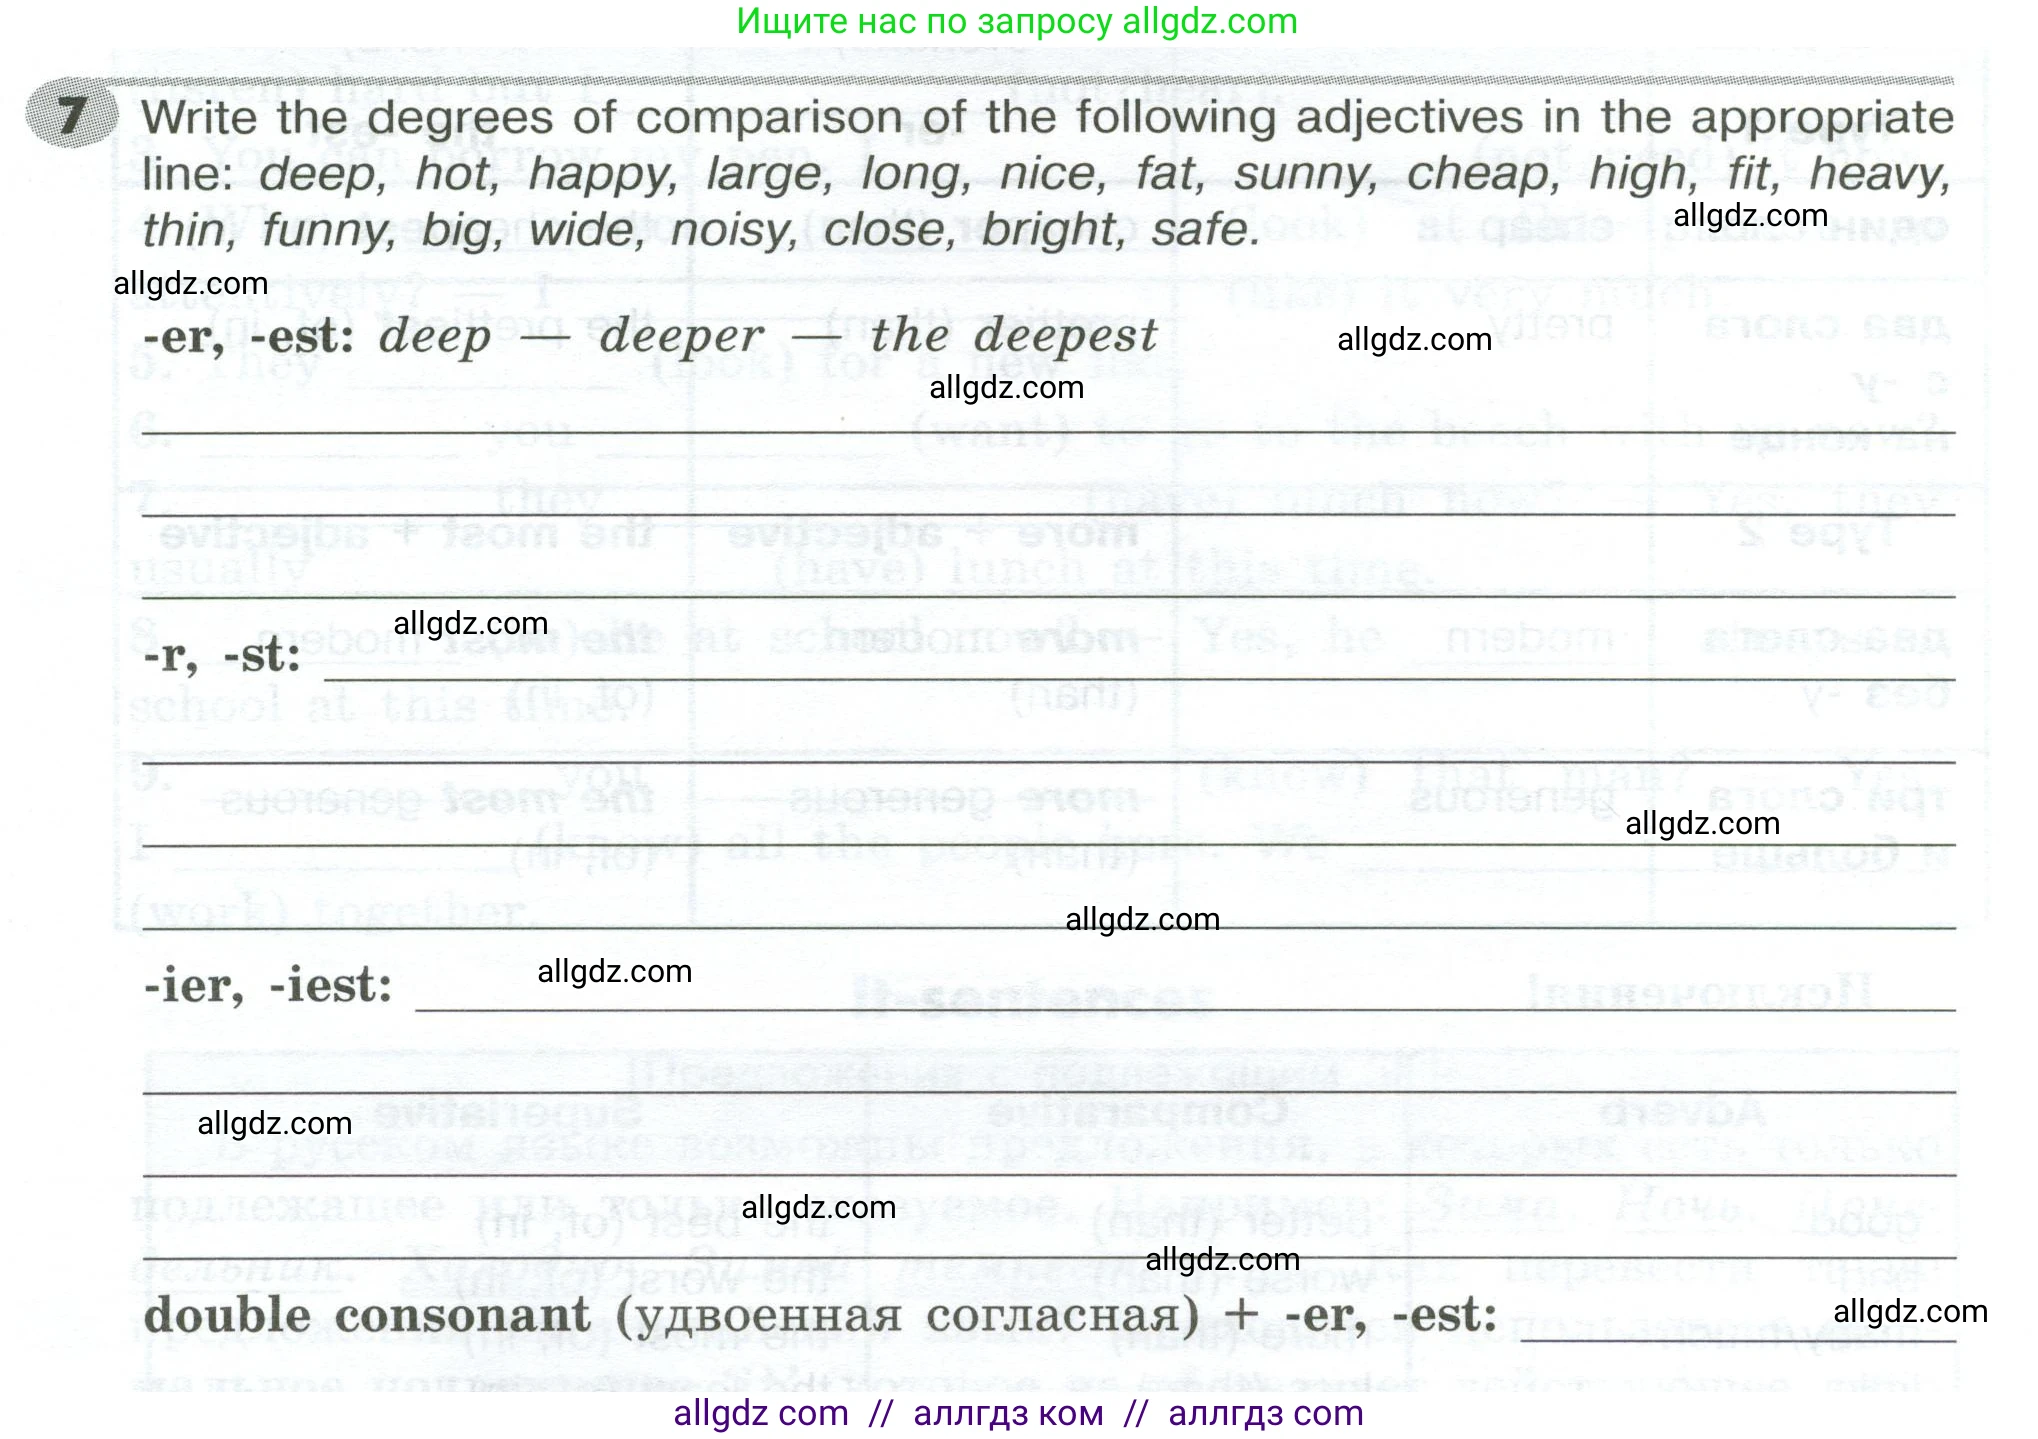 Ищите нас по запросу allgdz.com
7 Write the degrees of comparison of the following adjectives in the appropriate
line: deep, hot, happy, large, long, nice, fat, sunny, cheap, high, fit, heavy,
thin, funny, big, wide, noisy, close, bright, safe.
allgdz.com
allgdz.com
-er, -est: deep — deeper — the deepest
allgdz.com
allgdz.com
allgdz.com
-r, -st:
allgdz.com
allgdz.com
-ier, -iest:
allgdz.com
allgdz.com
allgdz.com
allgdz.com
double consonant (удвоенная согласная) + -er, -est:
allgdz.com
allgdz com // аллгдз ком // аллгдз com